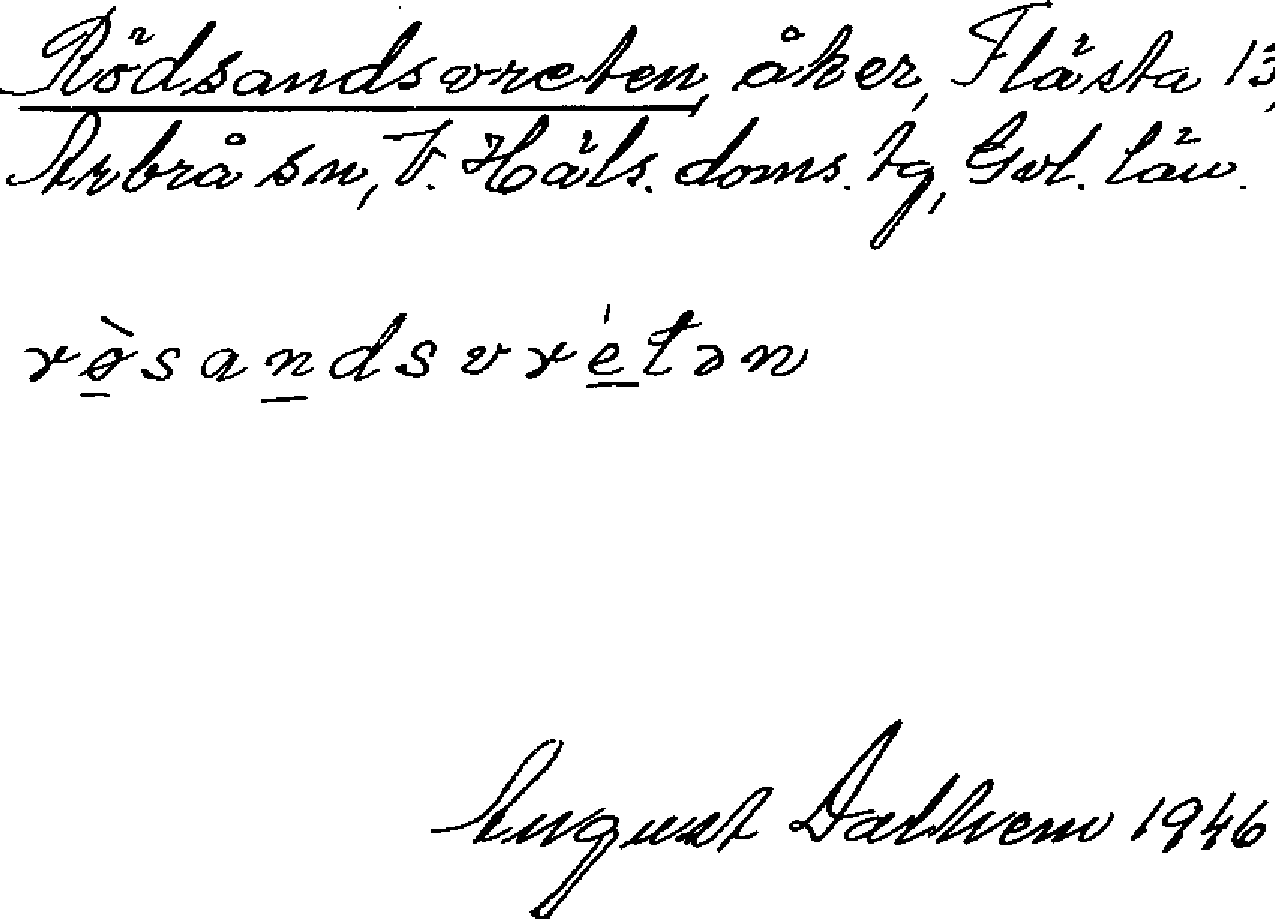 Rödsandsvreten, åker, Flästa 13,
Arbrå sn, V. Häls. doms. tg, Gvl. län.
rø̀sandsvrétən
August Dalhem 1946